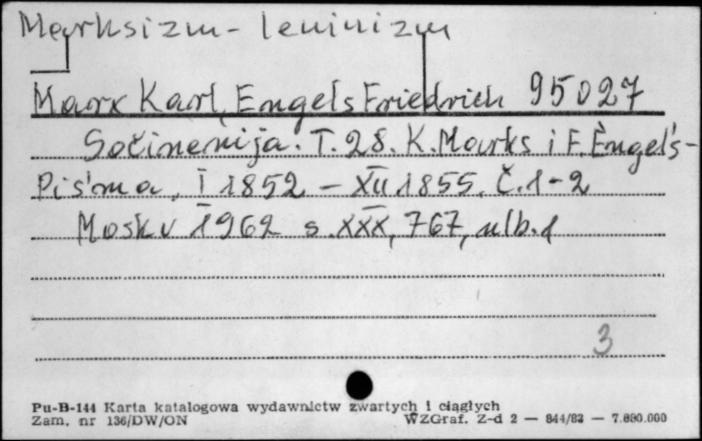 Marksizm-leninizm
Marx Karl, Engels Friedrich 95027
Sočinenija. T. 28. K. Marks i F. Èngel's-
Pis'ma, I 1852 - XII 1855. Č. 1-2
Moskv 1962 s. XXX, 767, alb. 1
3
Pu-B-144 Karta katalogowa wydawnictw zwartych i ciągłych
Zam. nr 136/DW/ON WZGraf. Z-d 2 — 844/82 — 7.890.000